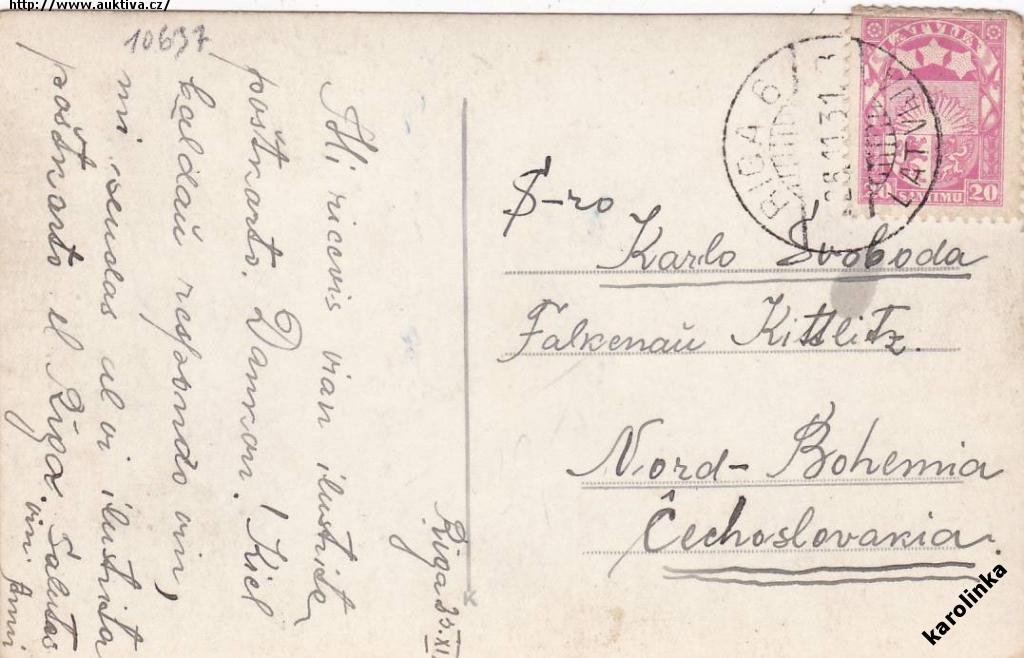 http://www.auktiva.cz/
10637
Riga 25.XI.
Mi ricevis vian ilustita
poŝtkarto. Dankon. Kiel
kaldaŭ respondo vin,
mi sendas al vi ilustita
poŝtkarto el Riga. Salutas
vin
LATVIJA
20 SANTIMU 20
RIGA 6
28.11.31. 3
LATVIJA
S-ro
Karlo Svoboda
Falkenau Kittlitz.
Nord-Bohemia
Čechoslovakia.
karolinka